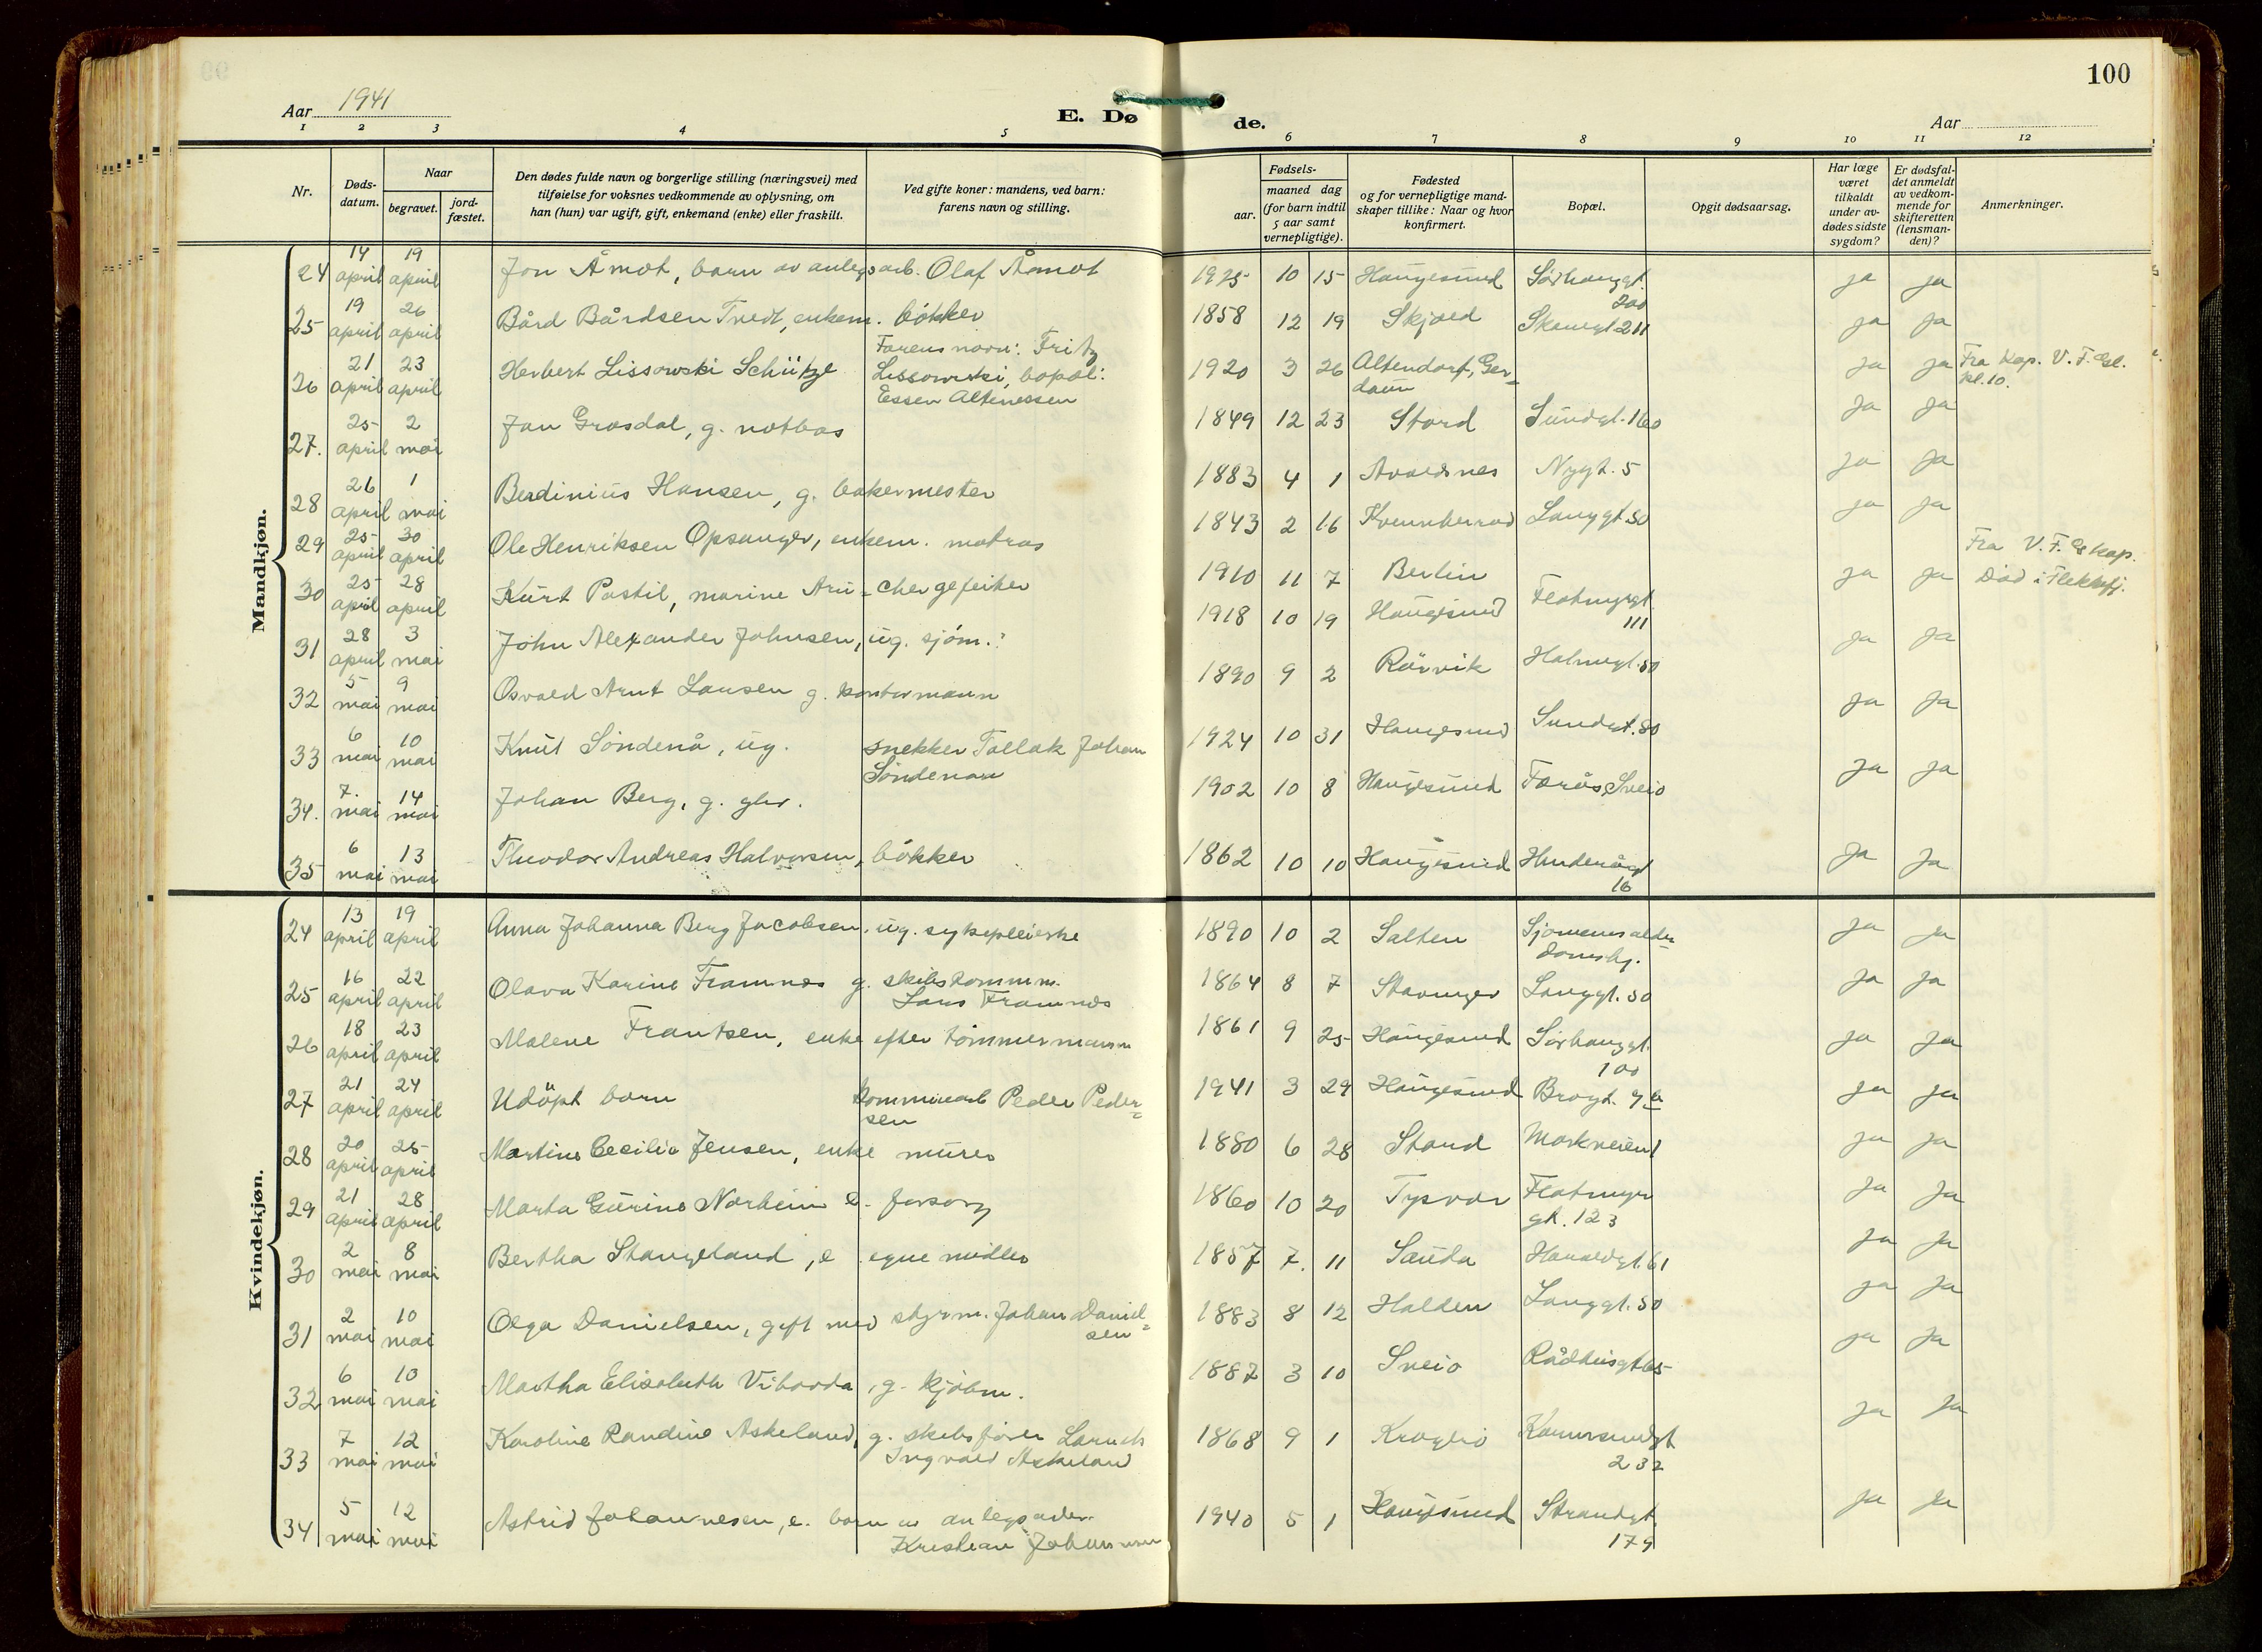 100
Aar 1941
E. Dø
de.
Aar
1 2 3 4 5 6 7 8 9 10 11 12
Nr.
Døds-
datum.
Naar
begravet.
jord-
fæstet.
Den dødes fulde navn og borgerlige stilling (næringsvei) med
tilføielse for voksnes vedkommende av oplysning, om
han (hun) var ugift, gift, enkemand (enke) eller fraskilt.
Ved gifte koner: mandens, ved barn:
farens navn og stilling.
Fødsels-
aar.
maaned dag
(for barn indtil
5 aar samt
vernepligtige).
Fødested
og for vernepligtige mand-
skaper tillike: Naar og hvor
konfirmert.
Bopæl.
Opgit dødsaarsag.
Har læge
været
tilkaldt
under av-
dødes sidste
sygdom?
Er dødsfal-
det anmeldt
av vedkom-
mende for
skifteretten
(lensman-
den)?
Anmerkninger.
Mandkjøn.
24 14 april 19 april Jon Åmot, barn av anlegsarb. Olaf Åmot 1925 10 15 Haugesund Sørhauggt. 200 ja ja
25 19 april 26 april Bård Bårdsen Tvedt, enkem. bökker 1858 12 19 Skjold Skaregt 211 ja ja
26 21 april 23 april Herbert Lissowski Schütze Farens navn: Fritz
Lissowski, bopæl:
Essen Altenessen 1920 3 26 Altendorf, Ger-
daun ja ja Fra kap. V. F. Gl.
kl. 10.
27. 25 april 2 mai Jan Grosdal, g. notbas 1849 12 23 Stord Sundgt. 160 ja ja
28 26 april 1 mai Berdinius Hansen, g. bakermester 1883 4 1 Avaldsnes Nygt. 5 ja ja
29 25 april 30 april Ole Henriksen Opsanger, enkem. matros 1843 2 16 Kvinnherad Langgt. 50 ja ja
30 25 april 28 april Kurt Pastil, marine 1910 11 7 Berlin ja ja Fra V. F. Gl kap.
Död i Flekkefj.
31 28 april 3 mai John Alexander Johnsen, ug. sjöm. 1918 10 19 Haugesund Flotmyrgt. 111 ja ja
32 5 mai 9 mai Osvald Arnt Lausen g. kontormann 1890 9 2 Rörvik Holmegt. 50 ja ja
33 6 mai 10 mai Knut Söndenå, ug. snekker Tollak Johan
Söndenaa 1924 10 31 Haugesund Sundgt. 80 ja ja
34. 7. mai 14 mai Johan Berg, g. gbr. 1902 10 8 Haugesund Förås, Sveio ja ja
35 6 mai 13 mai Theodor Andreas Halvorsen, bökker 1862 10 10 Haugesund Hinderågt 16 ja ja
Kvindekjøn.
24 13 april 19 april Anna Johanna Berg Jacobsen, ug. sykepleierske 1890 10 2 Salten Sjömennsalder-
domshj. ja ja
25 16 april 22 april Olava Karine Framnes g. skibstommm.
Lars Framnes 1864 8 7 Stavanger Langgt. 50 ja ja
26 18 april 23 april Malene Frantsen, enke efter tömmermann 1861 9 25 Haugesund Sörhauggt. 100 ja ja
27 21 april 24 april Udöpt barn kommunearb Peder Peder-
sen 1941 3 29 Haugesund Brogt. ja ja
28 20 april 25 april Martine Cecilie Jensen, enke murer 1880 6 28 Stord Markveien 1 ja ja
29 21 april 28 april Marta Gurine Norheim e. forsorg 1860 10 20 Tysvær Flotmyr
gt. 123 ja ja
30 2 mai 8 mai Bertha Stangeland, e. egne midler 1857 7. 11 Sauda Haraldgt. 61 ja ja
31 2 mai 10 mai Olga Danielsen, gift med styrm. Johan Daniel-
sen 1883 8 12 Halden Langgt. 50 ja ja
32 6 mai 10 mai Martha Elisabeth Viborda, g. kjöbm. 1887 3 10 Sveio Rådhusgt 65 ja ja
33 7 mai 12 mai Karoline Randine Askeland, g. skibsförer
Ingvald Askeland 1868 9 1 Karmsundgt 232 ja ja
34 5 mai 12 mai Astrid Johannesen, e. barn av anlegsarb.
Kristian Johannesen 1940 5 1 Haugesund Strandgt. 179 ja ja